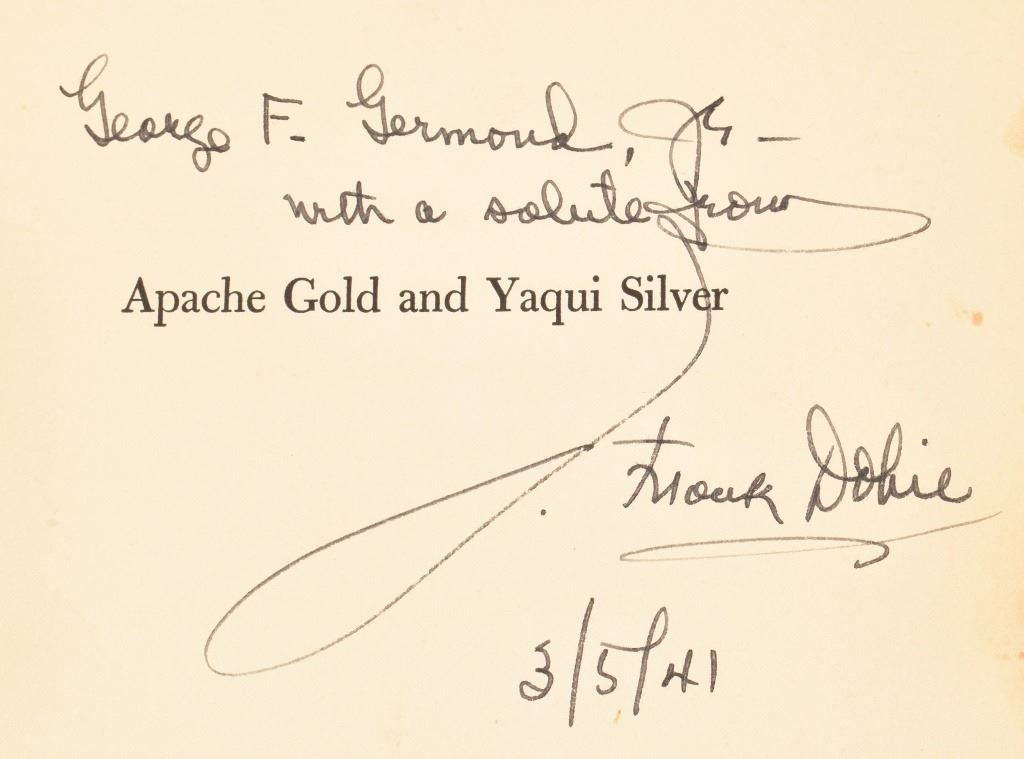 George F. Germond, Jr —
with a salute from
Apache Gold and Yaqui Silver
J. Frank Dobie
3/5/41